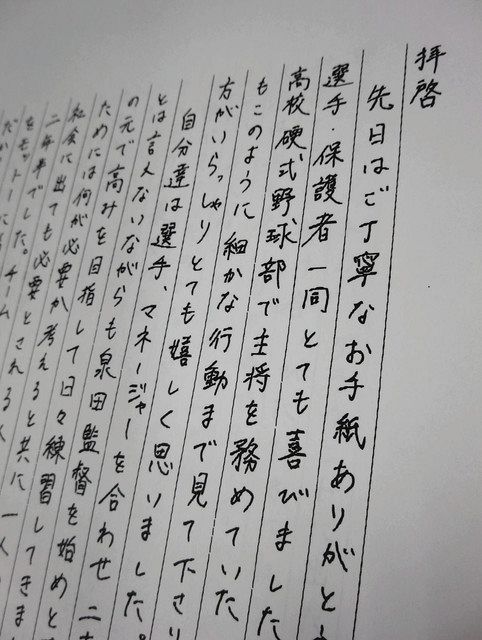 拝啓
先日はご丁寧なお手紙ありがと
選手・保護者一同とても喜びました
高校硬式野球部で主将を務めていた
もこのように細かな行動まで見て下さり
方がいらっしゃりとても嬉しく思いました。
自分達は選手、マネージャーを合わせ二
とは言えないながらも泉田監督を始めと
の元で高みを目指して日々練習してきま
ためには何が必要か考えると共に一人
社会に出ても必要とされる人
二年半でした。チーム
をモットーに